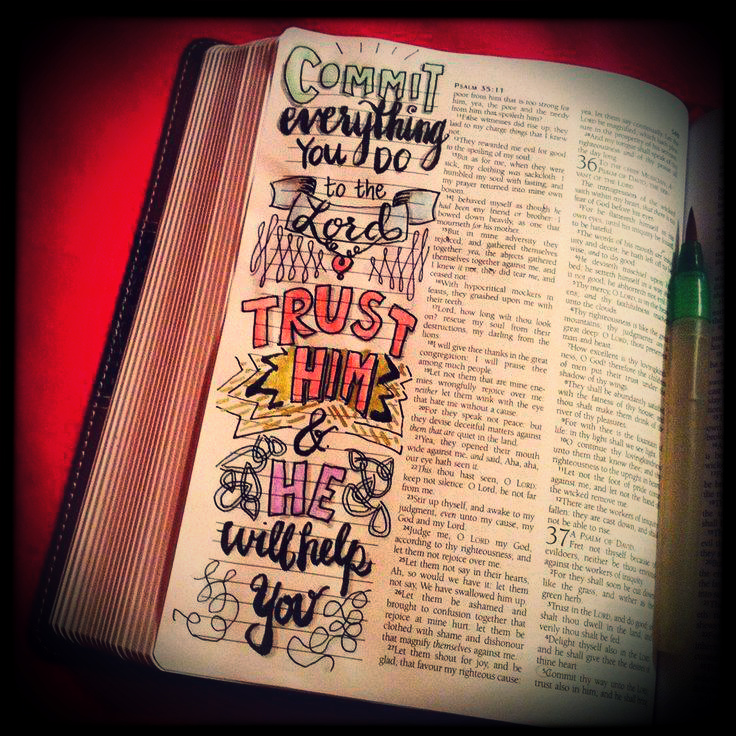 COMMIT
everything
YOU DO
to the
Lord
TRUST
HIM
&
HE
will help
You
PSALM 35:11
poor from him that is too strong for
him, yea, the poor and the needy
from him that spoileth him?
11False witnesses did rise up; they
laid to my charge things that I knew
not.
12They rewarded me evil for good
to the spoiling of my soul.
13But as for me, when they were
sick, my clothing was sackcloth: I
humbled my soul with fasting; and
my prayer returned into mine own
bosom.
14I behaved myself as though he
had been my friend or brother: I
bowed down heavily, as one that
mourneth for his mother.
15But in mine adversity they
rejoiced, and gathered themselves
together: yea, the abjects gathered
themselves together against me, and
I knew it not; they did tear me, and
ceased not:
16With hypocritical mockers in
feasts, they gnashed upon me with
their teeth.
17Lord, how long wilt thou look
on? rescue my soul from their
destructions, my darling from the
lions.
18I will give thee thanks in the great
congregation: I will praise thee
among much people.
19Let not them that are mine ene-
mies wrongfully rejoice over me:
neither let them wink with the eye
that hate me without a cause.
20For they speak not peace: but
they devise deceitful matters against
them that are quiet in the land.
21Yea, they opened their mouth
wide against me, and said, Aha, aha,
our eye hath seen it.
22This thou hast seen, O LORD:
keep not silence: O Lord, be not far
from me.
23Stir up thyself, and awake to my
judgment, even unto my cause, my
God and my Lord.
24Judge me, O LORD my God,
according to thy righteousness; and
let them not rejoice over me.
25Let them not say in their hearts,
Ah, so would we have it: let them
not say, We have swallowed him up.
26Let them be ashamed and
brought to confusion together that
rejoice at mine hurt: let them be
clothed with shame and dishonour
that magnify themselves against me.
27Let them shout for joy, and be
glad, that favour my righteous cause:
yea, let them say continually, Let the
LORD be magnified, which hath
28And my tongue shall speak of
the day long.
36
A PSALM OF DAVID, THE
VANT OF THE LORD.
The transgression of the wicked
saith within my heart, that there is no
fear of God before his eyes.
2For he flattereth himself in his
own eyes, until his iniquity be
to be hateful.
3The words of his mouth are
4He deviseth mischief upon his
bed; he setteth himself in a way
is not good; he abhorreth not evil.
5Thy mercy, O LORD, is in the
ens; and thy faithfulness
unto the clouds.
6Thy righteousness is like the
mountains; thy judgments are
great deep: O LORD, thou preser
man and beast.
7How excellent is thy lovingkind
ness, O God! therefore the children
of men put their trust under the
shadow of thy wings.
8They shall be abundantly satisfied
with the fatness of thy house; and
thou shalt make them drink of
river of thy pleasures.
9For with thee is the fountain of
life: in thy light shall we see light.
10O continue thy lovingkindness
unto them that know thee; and thy
righteousness to the upright in heart.
11Let not the foot of pride come
against me, and let not the hand of
the wicked remove me.
12There are the workers of iniquity
fallen: they are cast down, and shall
not be able to rise.
37
A PSALM OF DAVID.
Fret not thyself because of
evildoers, neither be thou envious
against the workers of iniquity.
2For they shall soon be cut down
like the grass, and wither as the
green herb.
3Trust in the LORD, and do good;
shalt thou dwell in the land, and
verily thou shalt be fed.
4Delight thyself also in the LORD:
and he shall give thee the desires of
thine heart.
5Commit thy way unto the LORD;
trust also in him; and he shall bring